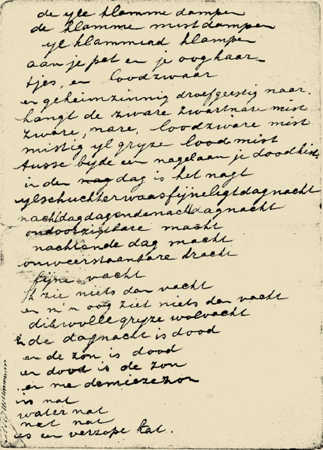 de yle klamme dampen
de klamme mistdampen
yl klammend klampen
aan je pet en je ooghaar-
tjes, en loodzwaar
en geheimzinnig droefgeestig naar.
hangt de zware zwartnare mist
zware, nare, loodzware mist
mistig yl gryze loodmist
tusse byde en nagelaan je doodkist
in den dag is het nagt
ylschuchterwaasfijneligtdagnacht
nachtdagdagendenachtdagnacht
ondoorzigtbare macht
nachtende dag macht
onweerstaanbare dracht
fijne vacht
ik zie niets dan vacht
en m'n oog ziet niets dan vacht
dikwolle gryze wolvacht
de dagnacht is dood
en de zon is dood
en dood is de zon
en me
is nat
water nat
nat nat
as en verzope kat.